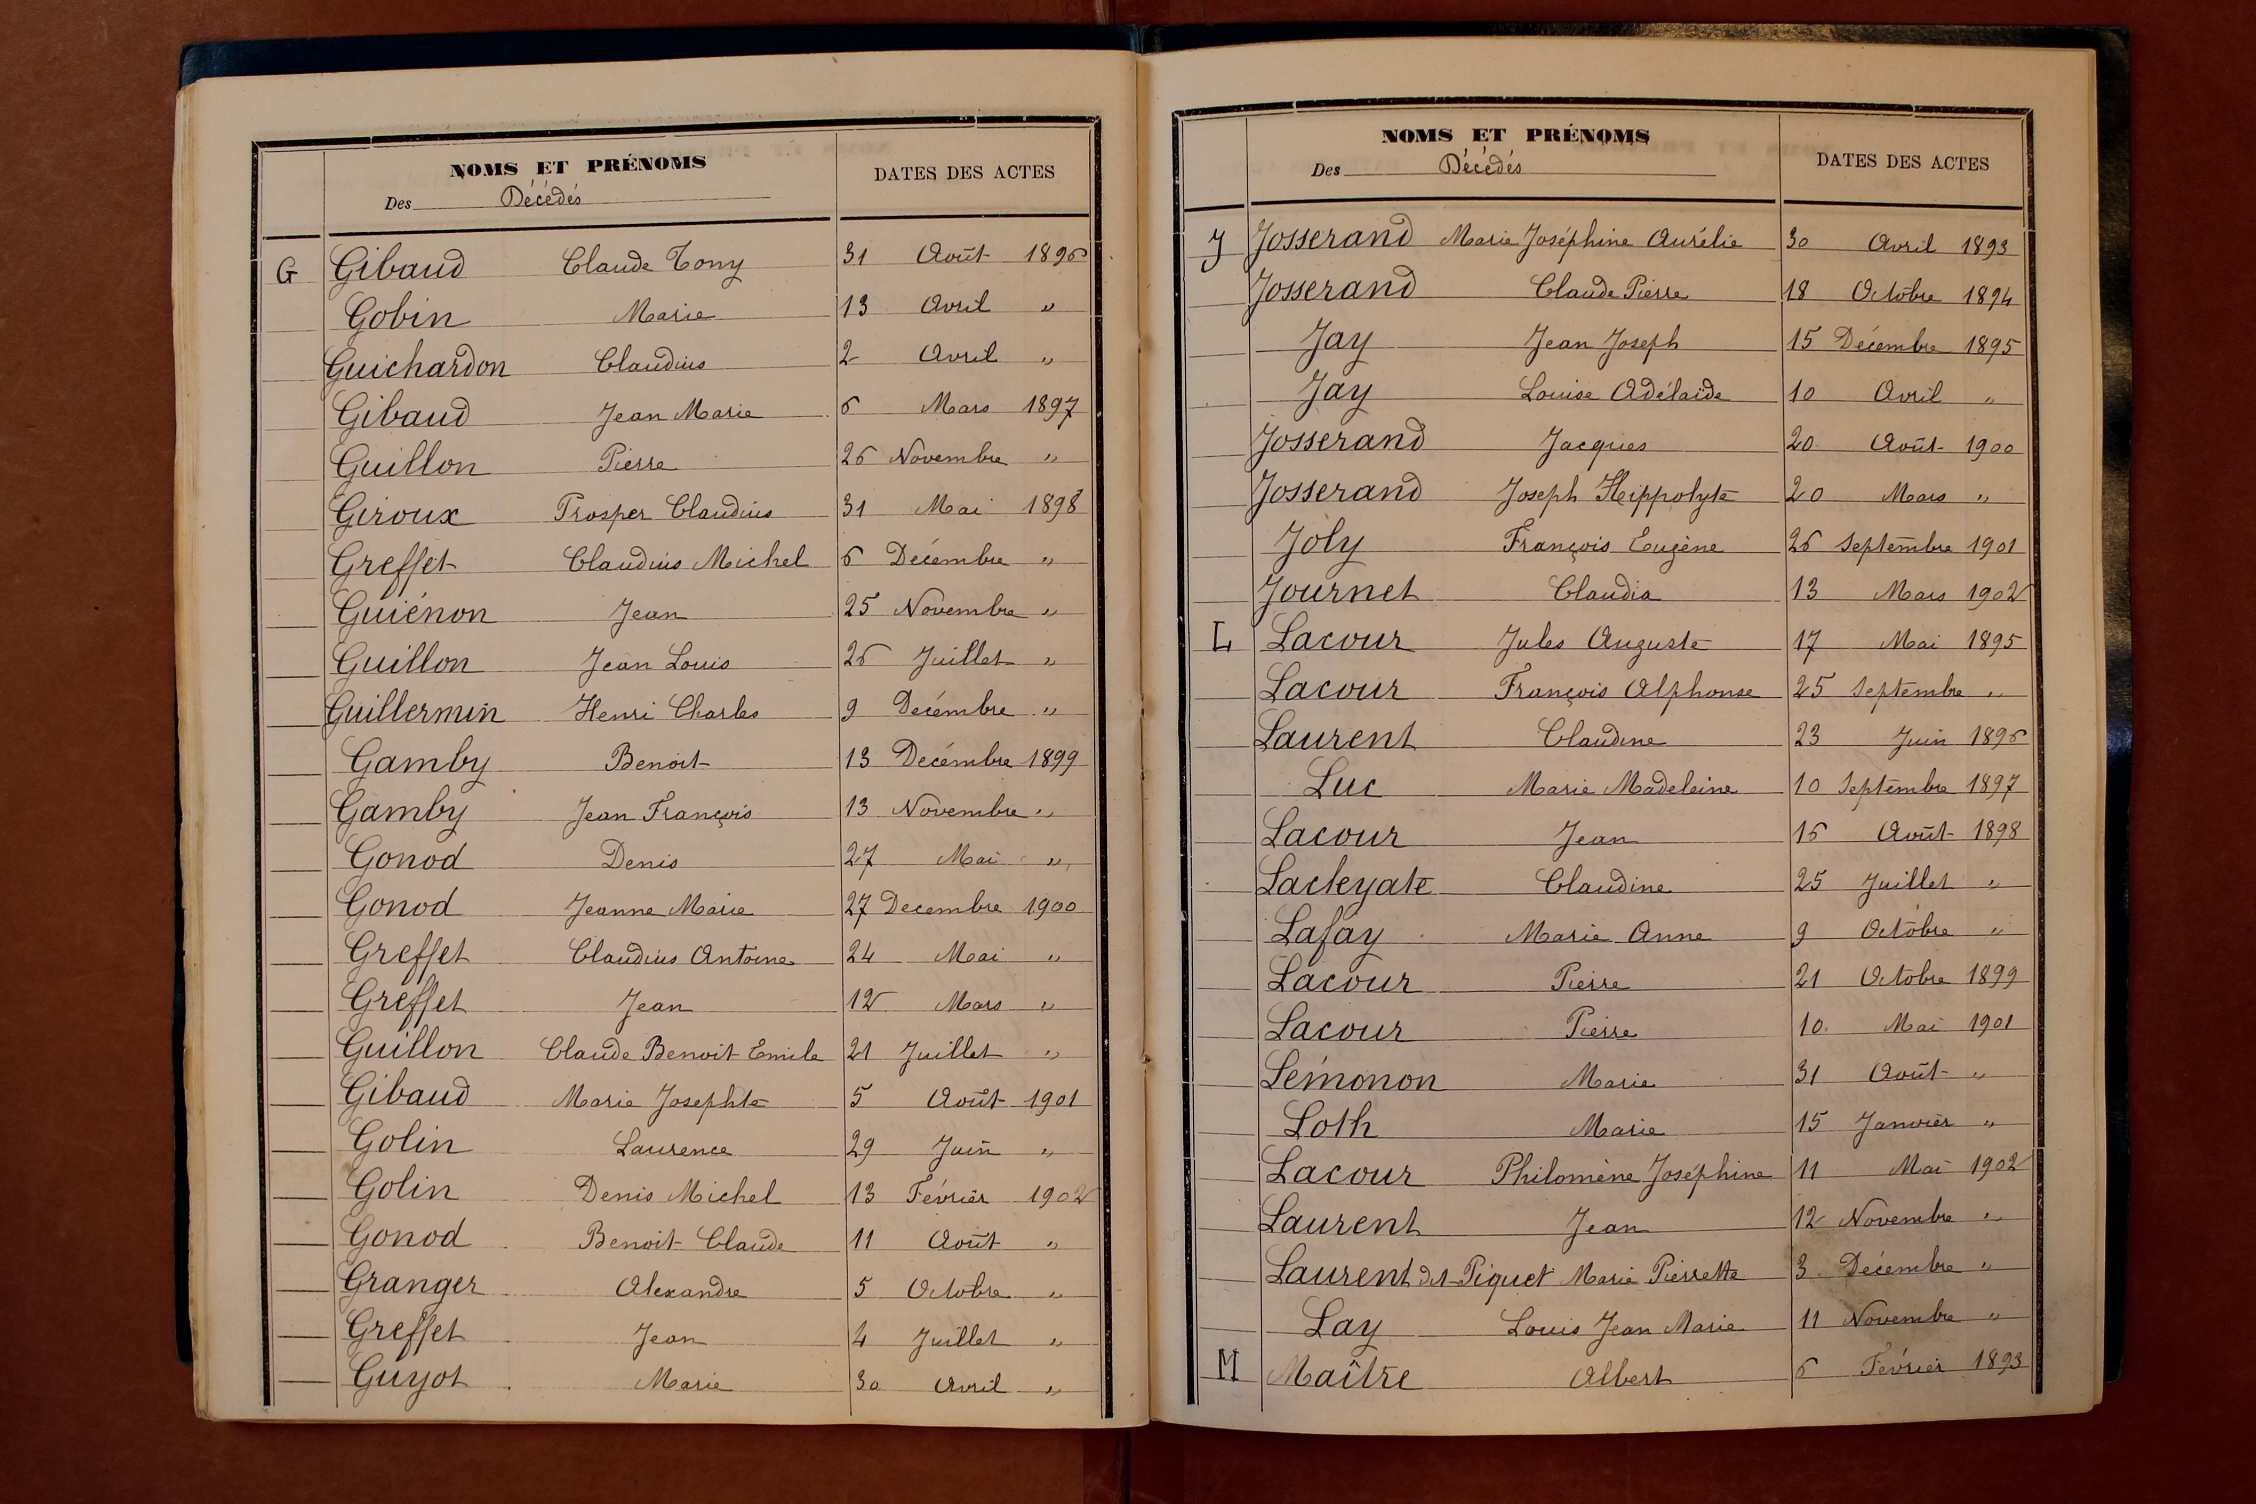 NOMS ET PRÉNOMS
Des Décédés
DATES DES ACTES
G Gibaud Claude Tony 31 Août 1896
Gobin Marie 13 Avril "
Guichardon Claudius 2 Avril "
Gibaud Jean Marie 6 Mars 1897
Guillon Pierre 26 Novembre "
Giroux Prosper Claudius 31 Mai 1898
Greffet Claudius Michel 6 Décembre "
Guiénon Jean 25 Novembre "
Guillon Jean Louis 26 Juillet "
Guillermin Henri Charles 9 Décembre "
Gamby Benoit 13 Decémbre 1899
Gamby Jean François 13 Novembre "
Gonod Denis 27 Mai "
Gonod Jeanne Marie 27 Decembre 1900
Greffet Claudius Antoine 24 Mai "
Greffet Jean 12 Mars "
Guillon Claude Benoit Emile 21 Juillet "
Gibaud Marie Josephte 5 Août 1901
Golin Laurence 29 Juin "
Golin Denis Michel 13 Février 1902
Gonod Benoit Claude 11 Août "
Granger Alexandre 5 Octobre "
Greffet Jean 4 Juillet "
Guyot Marie 30 Avril "
NOMS ET PRÉNOMS
Des Décédés
DATES DES ACTES
J Josserand Marie Joséphine Aurélie 30 Avril 1893
Josserand Claude Pierre 18 Octobre 1894
Jay Jean Joseph 15 Décembre 1895
Jay Louise Adélaïde 10 Avril "
Josserand Jacques 20 Août 1900
Josserand Joseph Hippolyte 20 Mars "
Joly François Eugène 26 Septembre 1901
Journet Claudia 13 Mars 1902
L Lacour Jules Auguste 17 Mai 1895
Lacour François Alphonse 25 Septembre "
Laurent Claudine 23 Juin 1896
Luc Marie Madeleine 10 Septembre 1897
Lacour Jean 16 Août 1898
Lacleyate Claudine 25 Juillet "
Lafay Marie Anne 9 Octobre "
Lacour Pierre 21 Octobre 1899
Lacour Pierre 10 Mai 1901
Lémonon Marie 31 Août "
Loth Marie 15 Janvier "
Lacour Philomène Joséphine 11 Mai 1902
Laurent Jean 12 Novembre "
Laurent dit Piquet Marie Pierrette 3 Décembre "
Lay Louis Jean Marie 11 Novembre "
M Maître Albert 6 Février 1893